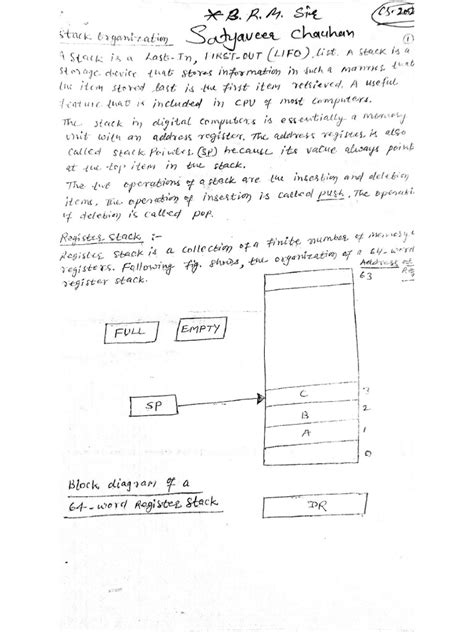 * B. R. M. Sir
CS-202
Stack Organization Satyaveer Chauhan
①
A Stack is a Last-In, FIRST-OUT (LIFO) list. A stack is a
storage device that stores information in such a manner that
the item stored last is the first item retrieved. A useful
feature that is included in CPU of most computers.
The stack in digital computers is essentially a memory
unit with an address register. The address register is also
called Stack Pointer (SP) because its value always point
at the top item in the stack.
The two operations of a stack are the insertion and deletion
items. The operation of insertion is called push. The operation
of deletion is called pop.
Register Stack :-
Register Stack is a collection of a finite number of memory
registers. Following fig. shows, the organization of a 64-word
register stack.
Address of
63
FULL EMPTY
SP
C 3
B 2
A 1
0
Block diagram of a
64-word Register Stack
DR